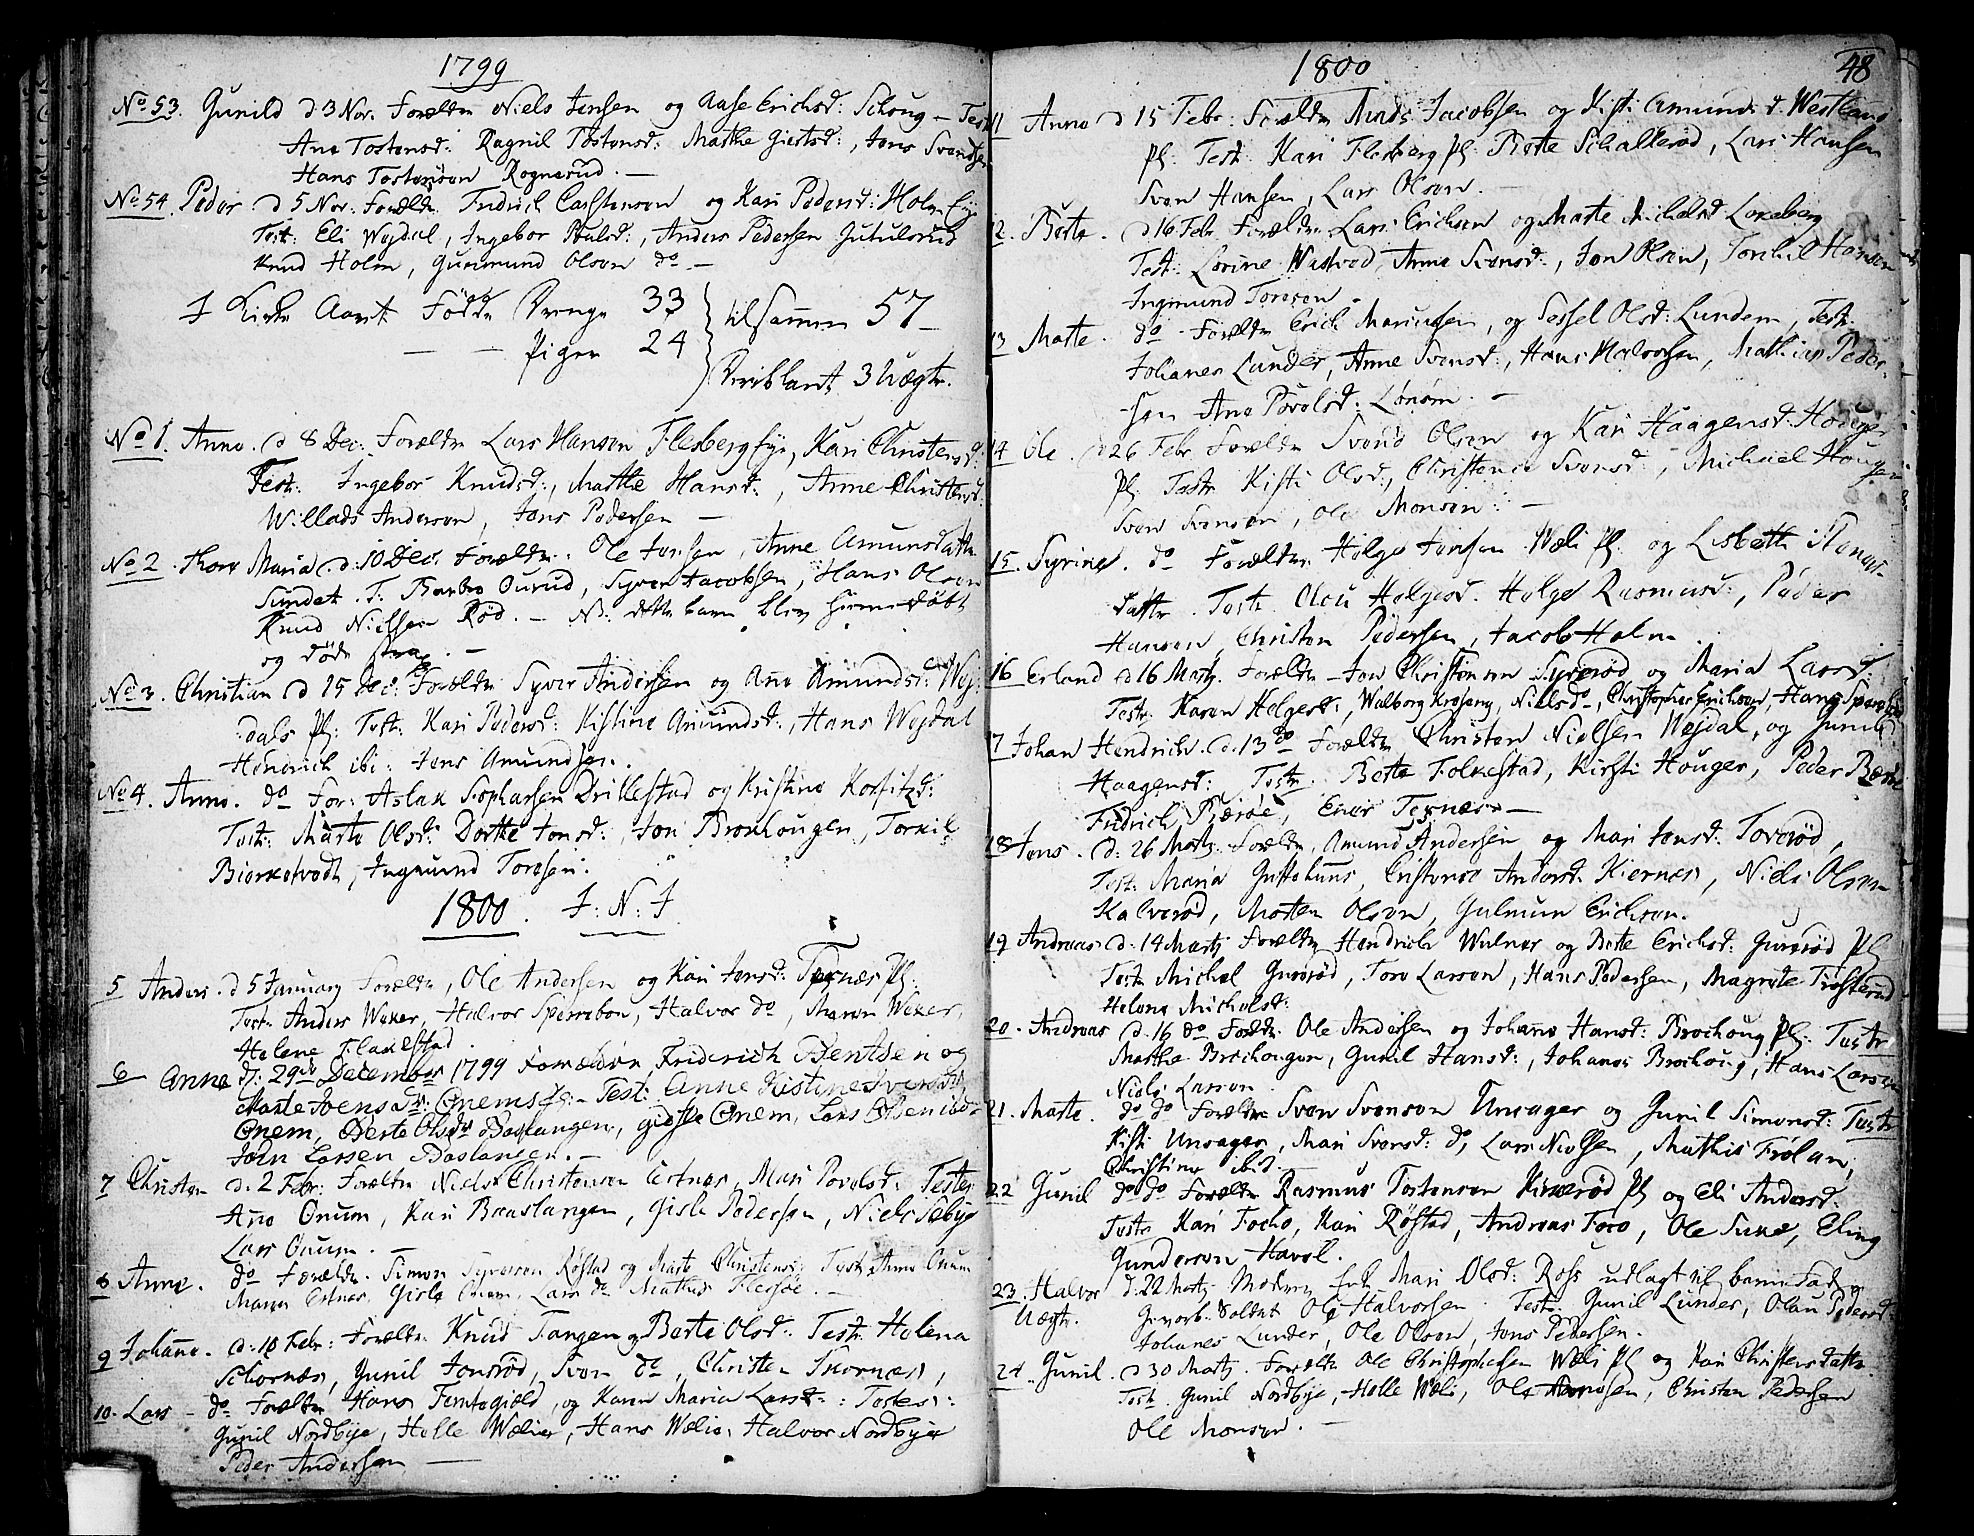 1799
No 53. Gunild d 3 Nov. Forældre Niels Jensen og Aase Erichsd: Schoug - Test
Ane Tostensd: Ragnil Tostensd: Marthe Giertsd:, Jens Svendsen
Hans Tostensen Rognerud. -
No 54. Peder. d 5 Nov: Forældre Fridrich Carstensen og Kari Pedersd: Holm Eje
Test: Eli Wejdal, Ingebor Paulsd:, Anders Pedersen Gutulsrud
Knud Holm, Gunmund Olsen do -
I Kirke Aaret Födde Drenge 33
- - Pigen 24
tilsammen 57 -
Deriblant 3 Uægte.
No 1. Anne. d 8 Dec: Forældre Lars Hansen Flesberg Eje, Kari Christensd:
Test: Ingebor Knudsd:, Marthe Hansd:, Anne Christensd:
Willads Andersen, Jens Pedersen -
No 2. Thore Maria d: 10 Dec. Forældre. Ole Jensen, Anne Amunsdatter
Sundet. T: Barbro Ourud, Syver Jacobsen, Hans Olsen
Knud Nielsen Röd. - NB: dette barn blev hiemmedöbt
og döde strax. -
No 3. Christian d 15 Dec: Forældre Syver Andersen og Ane Amundsd: Wej-
dals Pl: Test: Kari Pedersd: Kistine Amundsd:, Hans Wejdal
Henderich ibi: Jens Amundsen.
No 4. Anne. do For: Aslak Sophassen Drillestad og Kristine Korfitzd:
Test: Marte Olsd: Dorthe Jensd:, Jon Brouhougen, Torkil
Biorketvedt, Ingmund Toresen.
1800. I: N: I
5 Anders. d 5 January Forældre, Ole Andersen og Kari Jensd: Ternæs Pl:
Test: Anders Weker, Halvor Sperrebon, Halvor do, Maren Weker,
Helene Flakestad.
6 Anne d: 29de December 1799 Forældre Friderich Bentsen og
Marte Joensdtr: Onems Eje - Test: Anne Kistine Iversdtr
Onem, Berte Olsdtr Baslangen, gidske Onem, Lars Olsen
Joen Larsen Baslangen. -
7 Christen d. 2 Febr: Forældre Niels Christensen Ertnes, Mari Povelsd: Testes
Ane Onum, Kari Baaslangen, Gisle Pedersen, Niels Sebye
Lars Onum. -
8 Anne. do Forældre. Simon Syversen Röstad og Marte Christensd: Test: Anne Onum
Maren Ertnes, Gisle Onum, Lars do Mathis Flessöe. -
9 Johanne. d. 10 Febr: Forældre Knud Tangen og Berte Olsd: Test: Helena
Schornæs, Gunil Jonsröd, Sven do, Christen Skornæs,
10. Lars - do Forældre Hans Femtegield, og Karen Maria Larsd: Testes:
Gunil Nordbye, Helle Wælie, Hans Wælie, Halvor Nordbye
Peder Andersen -
1800
48
11 Anne d 15 Febr: Forældre Mads Jacobsen og Kisti Amunds d. Westbens
Pl. Test: Kari Flesberg Pl. Berte Schallerød, Lars Hansen
Sven Hansen, Lars Olsen. -
12. Berte. d 16 Febr. Forældre Lars Erichsen og Marte Michelsd Lokeberg
Test: Lorine Wastved, Anne Svensd:, Jon Olsen, Torchil Hansen
Ingmund Toresen -
13 Marte. do Forældre Erich Mariusen, og Sessel Olsd: Lunden, Test:
Johanes Lunder, Anne Svensd:, Hans Halvorsen, Mathias Peder-
-sen Ane Povelsd: Lönöm. -
14 Ole. d 26 Febr. Forældre Svend Olsen og Kari Haagensd: Houger
Pl. Test: Kisti Olsd:, Christence Svensd:, Michael Hougen
Sven Svensen, Ole Monsen. -
15. Syrine. do Forældre Helge Jensen Wæli Pl. og Lisbeth
datter. Test: Oleu Helgesd. Helge Rasmusd:, Peder
Hansen, Christen Pedersen, Jacob Holm.
16 Erland d 16 Marty. Forældre Jon Christensen Syrerød og Maria Larsd:
Test: Karen Helgesd:, Walborg Krosong, Niels do, Christopher Erichsen, Hans Sperrebo
17 Johan Hendrich. d. 13 do Forældre Christen Nielsen Wejdal, og Gunild
Haagensd: Test: Berte Folkestad, Kirsti Houger, Peder Bæröe
Fridrich Bæröe, Ener Ternæs -
18 Jens. d: 26 Marty Forældre Amund Andersen og Mari Jensd: Toveröd,
Test: Maria Guttekuns, Cristense Andersd. Kiernæs, Niels Olsen
Kalveröd, Morten Olsen, Gulmun Erichsen.
19 Andreas d. 14 Marty Forældre Hendrich Wulner og Berte Erichsd: Guneröd Pl
Test: Michel Guneröd, Tore Larsen, Hans Pedersen, Magrete Trösterud
Helene Michelsd:
20. Andreas d. 16 do Foreldre Ole Andersen og Johane Hansd: Brochoug Pl. Test:
Marthe Brochougen, Gunil Hansd:, Johanes Brochoug, Hans Larsen
Niels Larsen.
21. Marte. do do Forældre Sven Svensen Unsager og Gunil Simensd: Test:
Kisti Unsager, Mari Svensd: do, Lars Nielsen, Mathis Frölan,
Christine ibid.
22 Gunil do do Forældre Rasmus Tostensen Kiserød Pl og Eli Andersd.
Test: Kari Foche, Kari Röstad, Andreas Foco, Ole Suse, Eling
Gundersen Havel.
23. Halvor d. 22 Marty. Moderen Enk. Mari Olsd: Ross udlagt til barne Fader
Uægte. Gevorb. Soldat Ole Halvorsen. Test: Gunil Lunder, Olau Pedersd.
Johanes Lunder, Ole Olsen, Jens Pedersen.
24. Gunil. d 30 Marty. Forældre Ole Christophersen Wæli Pl og Kari Christensdatter
Test. Gunil Nordbye, Helle Wæli, Ole Hansen, Christen Pedersen
Ole Monsen. -